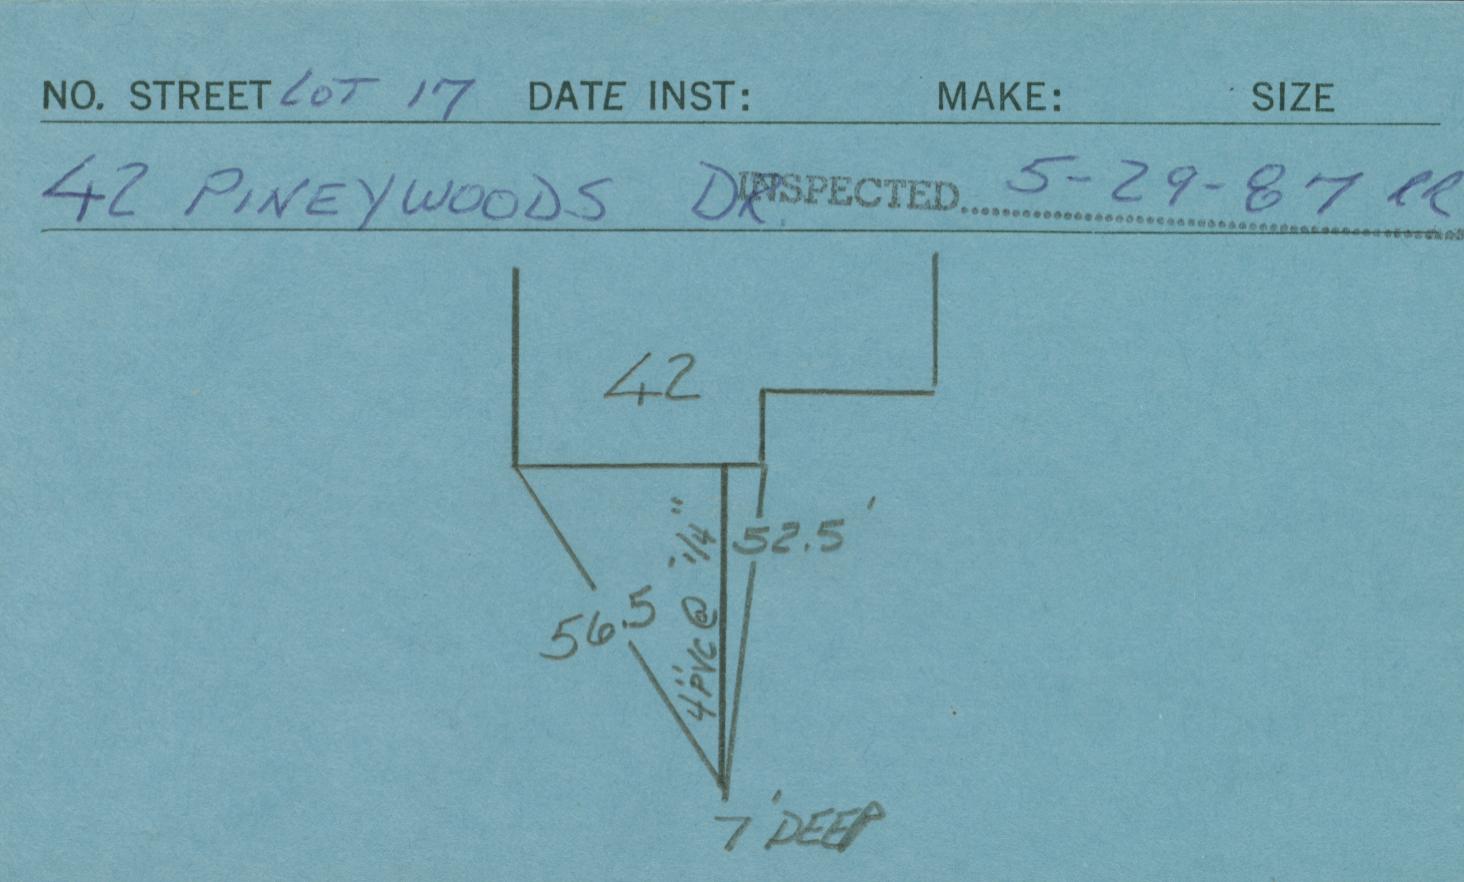 NO. STREET LOT 17 DATE INST: MAKE: SIZE
42 PINEYWOODS DR INSPECTED 5-29-87 RR
42
52.5'
56.5
4" PVC @ 1/4"
7' DEEP